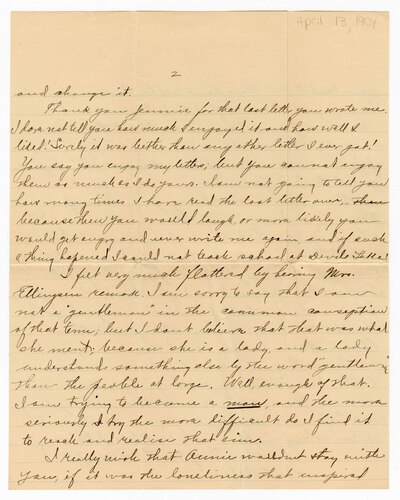 April 13, 1904
2
and change it.
Thank you Jennie for that last letter you wrote me.
I dare not tell you how much I enjoyed it and how well I
liked! Surely it was better than any other letter I ever got!
You say you enjoy my letters, but you cannot enjoy
them as much as I do yours. I am not going to tell you
how many times I have read the last letter over,
because then you would laugh, or more likely you
would get angry and never write me again and if such
a thing hapened I could not teach school at Devils Lake!
I felt very much flattered by hering Mrs.
Ellingsen remark. I am sorry to say that I am
not a "gentleman" in the common conseption
of that term, but I don't believe that that was what
she ment; because she is a lady and a lady
understand something else by the word "gentleman"
than the people at large. Well enough of that.
I am trying to become a man and the more
seriously I try the more difficult do I find it
to reach and realise that aim.
I really wish that Annie wouldn't stay with
you, if it was the loneliness that inspired